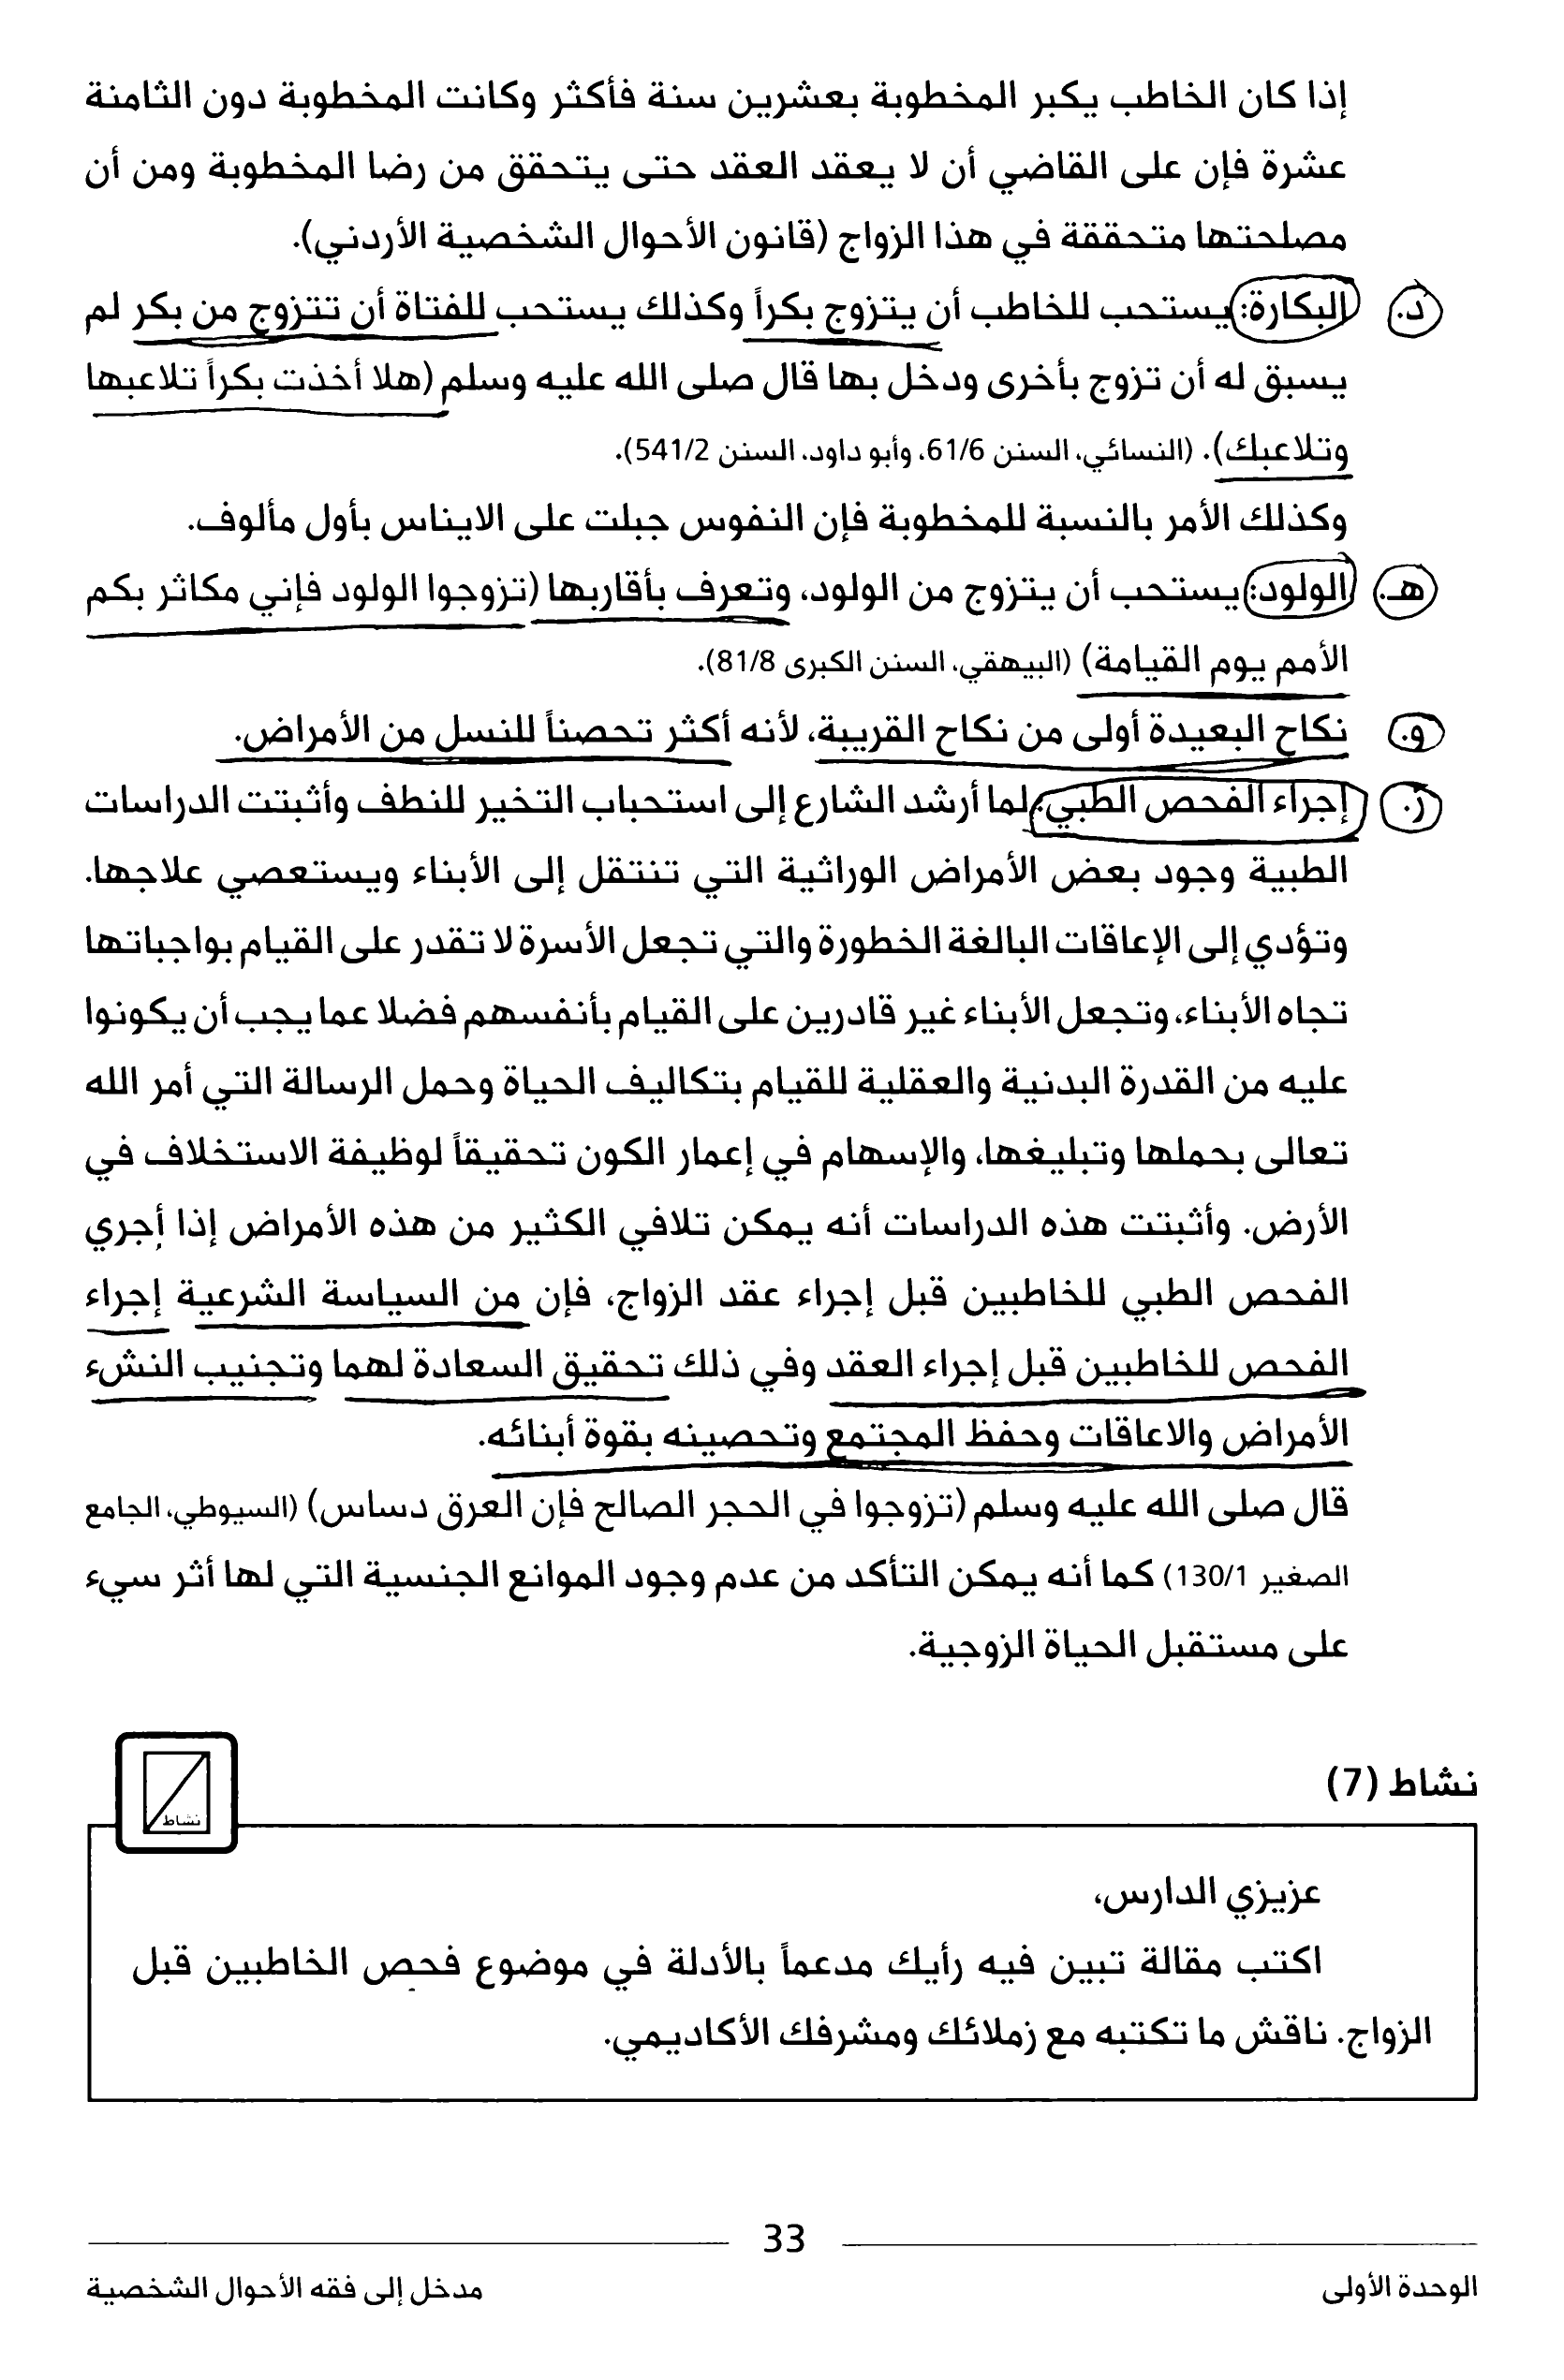 إذا كان الخاطب يكبر المخطوبة بعشرين سنة فأكثر وكانت المخطوبة دون الثامنة
عشرة فإن على القاضي أن لا يعقد العقد حتى يتحقق من رضا المخطوبة ومن أن
مصلحتها متحققة في هذا الزواج (قانون الأحوال الشخصية الأردني).
د. البكارة: يستحب للخاطب أن يتزوج بكراً وكذلك يستحب للفتاة أن تتزوج من بكر لم
يسبق له أن تزوج بأخرى ودخل بها قال صلى الله عليه وسلم (هلا أخذت بكراً تلاعبها
وتلاعبك). (النسائي، السنن 61/6، وأبو داود، السنن 541/2).
وكذلك الأمر بالنسبة للمخطوبة فإن النفوس جبلت على الايناس بأول مألوف.
هـ. الولود: يستحب أن يتزوج من الولود، وتعرف بأقاربها (تزوجوا الولود فإني مكاثر بكم
الأمم يوم القيامة) (البيهقي، السنن الكبرى 81/8).
و. نكاح البعيدة أولى من نكاح القريبة، لأنه أكثر تحصناً للنسل من الأمراض.
ز. إجراء الفحص الطبي: لما أرشد الشارع إلى استحباب التخير للنطف وأثبتت الدراسات
الطبية وجود بعض الأمراض الوراثية التي تنتقل إلى الأبناء ويستعصي علاجها.
وتؤدي إلى الإعاقات البالغة الخطورة والتي تجعل الأسرة لا تقدر على القيام بواجباتها
تجاه الأبناء، وتجعل الأبناء غير قادرين على القيام بأنفسهم فضلا عما يجب أن يكونوا
عليه من القدرة البدنية والعقلية للقيام بتكاليف الحياة وحمل الرسالة التي أمر الله
تعالى بحملها وتبليغها، والإسهام في إعمار الكون تحقيقاً لوظيفة الاستخلاف في
الأرض. وأثبتت هذه الدراسات أنه يمكن تلافي الكثير من هذه الأمراض إذا أجري
الفحص الطبي للخاطبين قبل إجراء عقد الزواج، فإن من السياسة الشرعية إجراء
الفحص للخاطبين قبل إجراء العقد وفي ذلك تحقيق السعادة لهما وتجنيب النشء
الأمراض والاعاقات وحفظ المجتمع وتحصينه بقوة أبنائه.
قال صلى الله عليه وسلم (تزوجوا في الحجر الصالح فإن العرق دساس) (السيوطي، الجامع
الصغير 130/1) كما أنه يمكن التأكد من عدم وجود الموانع الجنسية التي لها أثر سيء
على مستقبل الحياة الزوجية.
نشاط (7)
نشاط
عزيزي الدارس،
اكتب مقالة تبين فيه رأيك مدعماً بالأدلة في موضوع فحص الخاطبين قبل
الزواج. ناقش ما تكتبه مع زملائك ومشرفك الأكاديمي.
33
الوحدة الأولى
مدخل إلى فقه الأحوال الشخصية